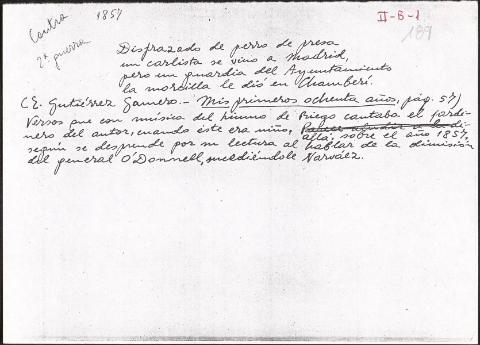 Contra
2ª guerra
1857
II-6-1
189
Disfrazado de perro de presa
un carlista se vino a Madrid,
pero un guardia del Ayuntamiento
la morcilla le dió en Chamberí.
(E. Gutiérrez Gamero.- Mis primeros ochenta años, pág. 57)
Versos que con música del himno de Riego cantaba el jardi-
nero del autor, cuando éste era niño, Parece aludir a la di-
allá, sobre el año 1857,
según se desprende por su lectura al hablar de la dimisión
del general O'Donnell, sucediéndole Narváez.